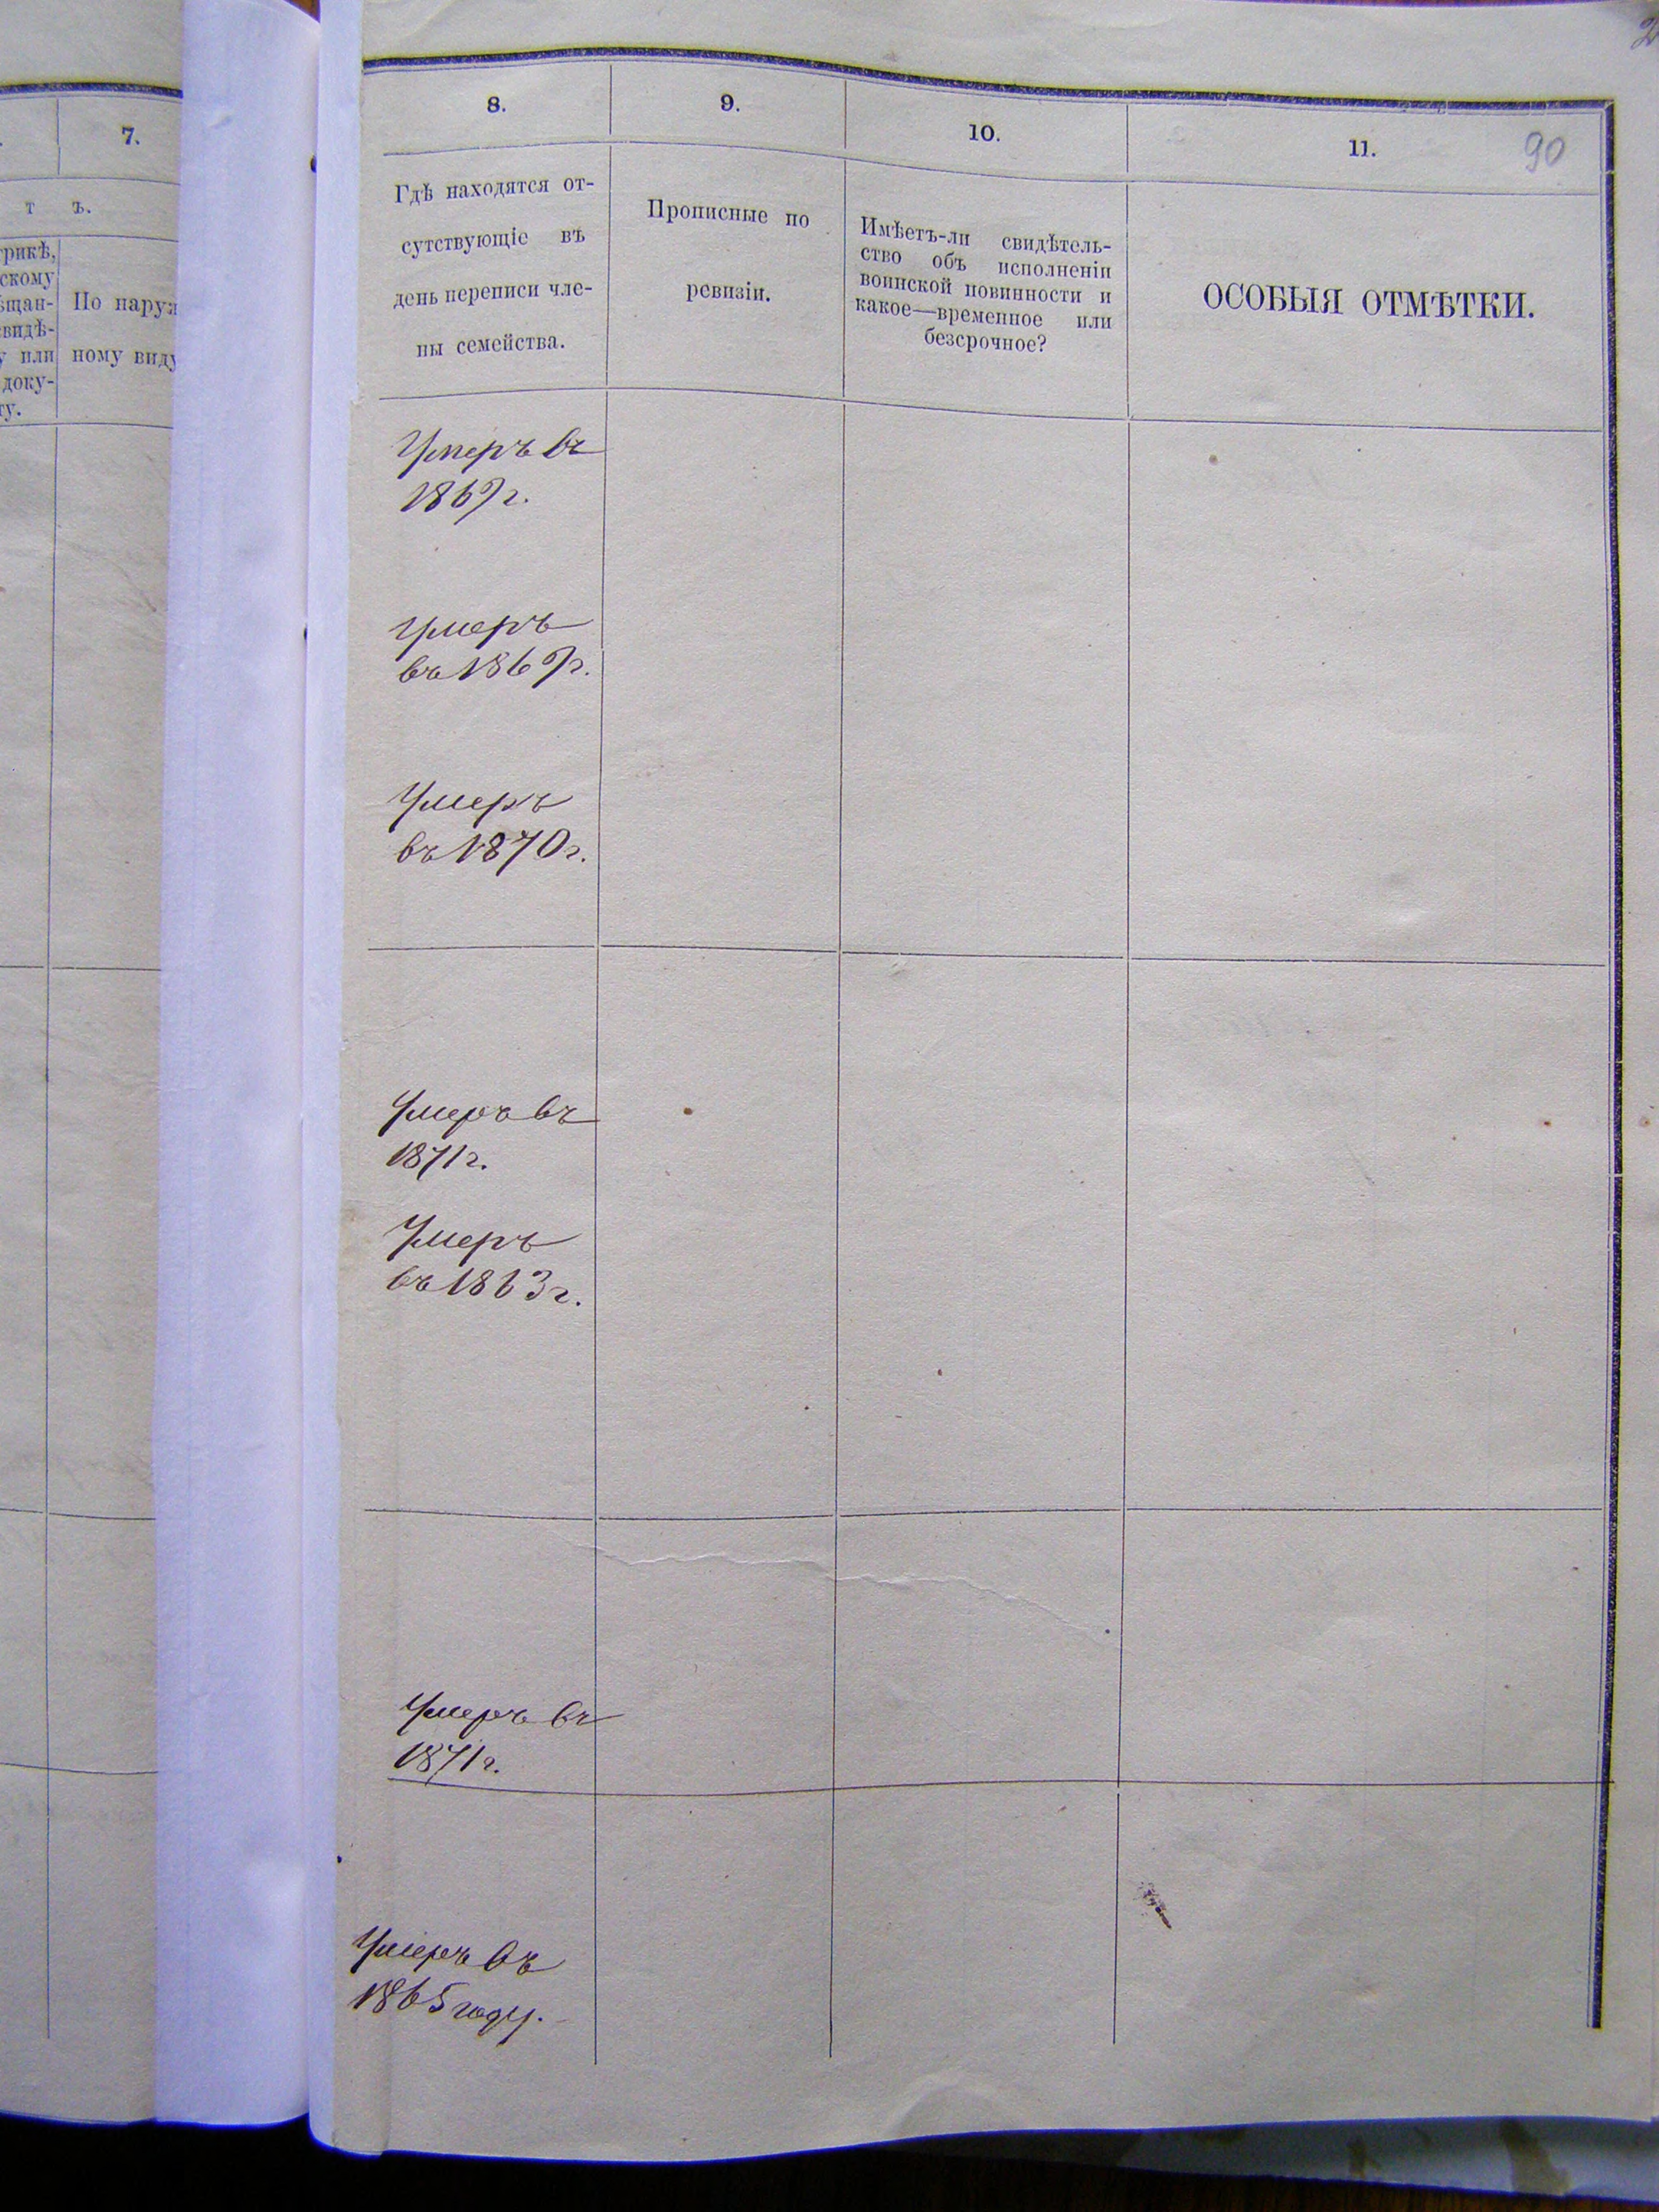 7.
т ъ.
По наруж
ному виду
8.
Гдѣ находятся от-
сутствующіе въ
день переписи чле-
ны семейства.
9.
Прописные по
ревизіи.
10.
Имѣетъ-ли свидѣтель-
ство объ исполненіи
воинской повинности и
какое—временное или
безсрочное?
11.
90
ОСОБЫЯ ОТМѢТКИ.
Умеръ въ
1869 г.
Умеръ
въ 1869 г.
Умеръ
въ 1870 г.
Умеръ въ
1871 г.
Умеръ
въ 1863 г.
Умеръ въ
1871 г.
Умеръ въ
1865 году.